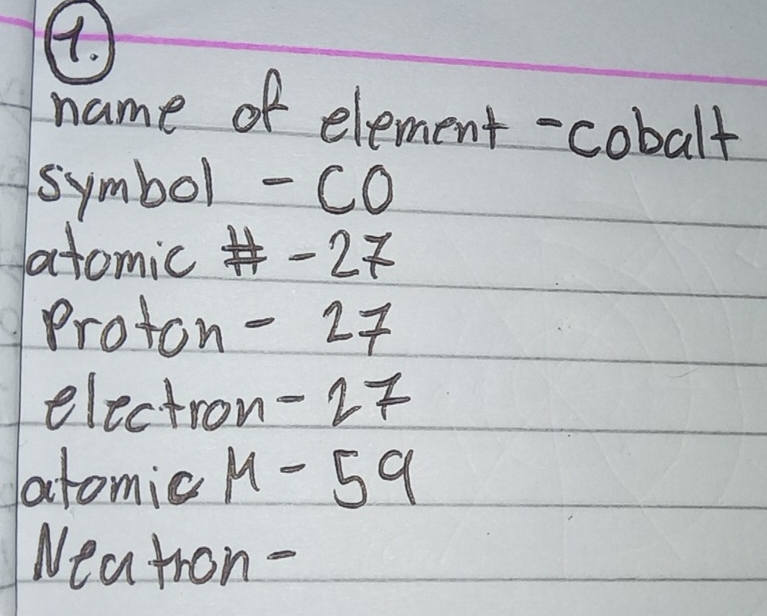 1.
name of element - cobalt
symbol - CO
atomic # - 27
Proton - 27
electron - 27
atomic M - 59
Neutron -